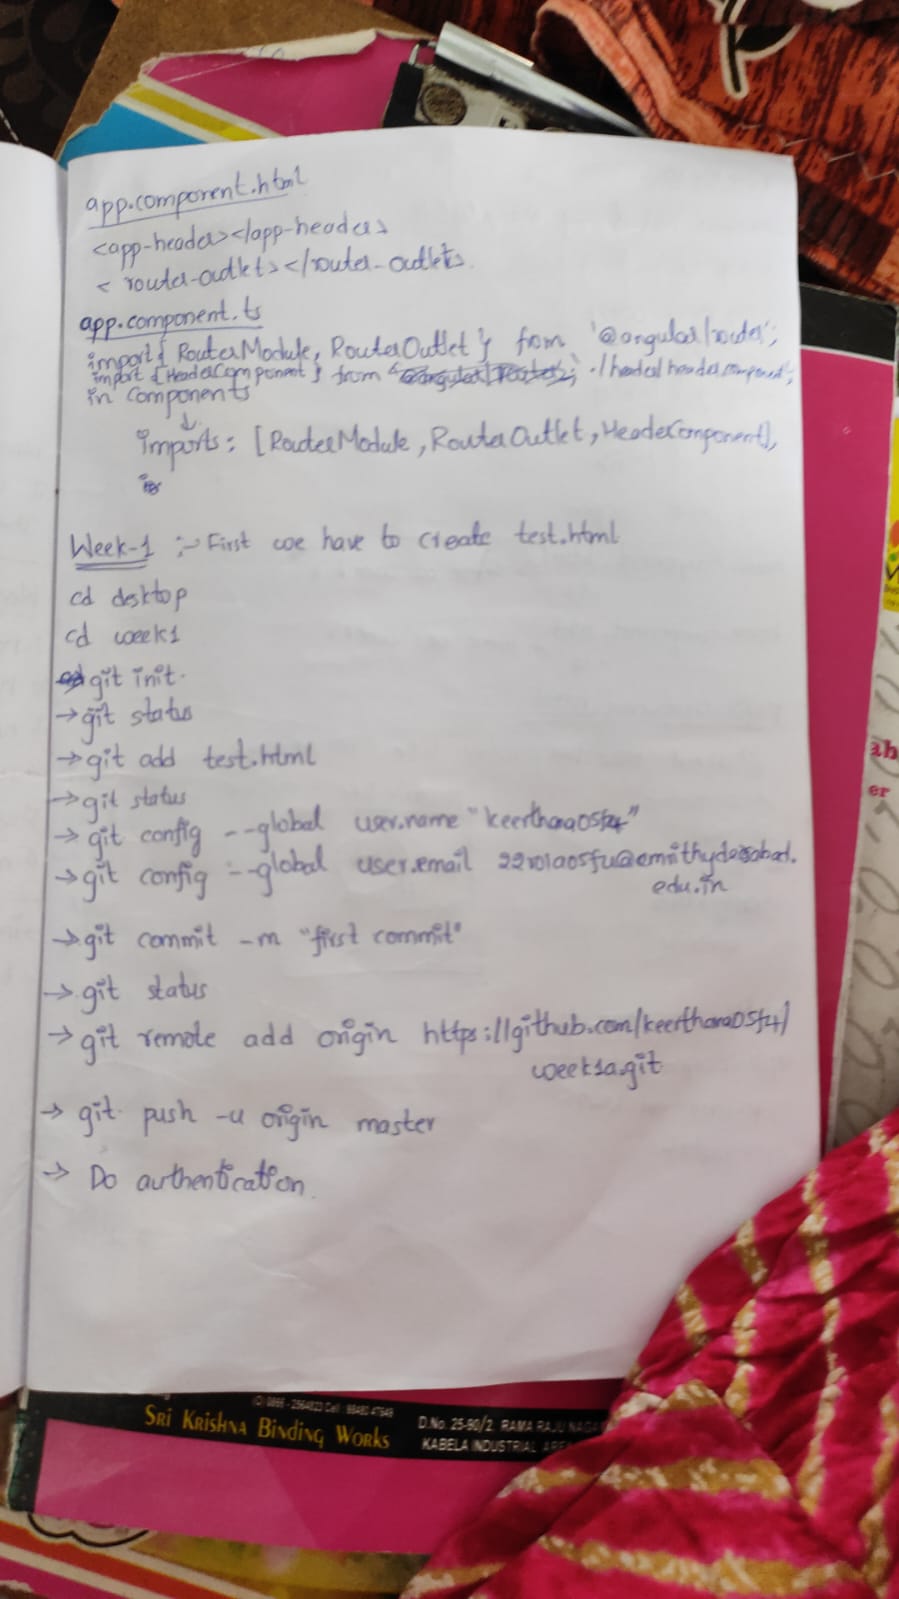 app.component.html
<app-header></app-header>
<router-outlet></router-outlet>
app.component.ts
import { RouterModule, RouterOutlet } from '@angular/router';
import {HeaderComponent} from './header/header.component';
in components
↓
imports: [RouterModule, RouterOutlet, HeaderComponent],
Week-1 :- First we have to create test.html
cd desktop
cd week1
git init.
→ git status
→ git add test.html
→ git status
→ git config --global user.name "keerthana05f4"
→ git config --global user.email
edu.in
→ git commit -m "first commit"
→ git status
→ git remote add origin https://github.com/keerthana05f4/
week1a.git
→ git push -u origin master
→ Do authentication.
SRI KRISHNA BINDING WORKS
D.No. 25-90/2, RAMA RAJU NAGA
KABELA INDUSTRIAL
ah
er